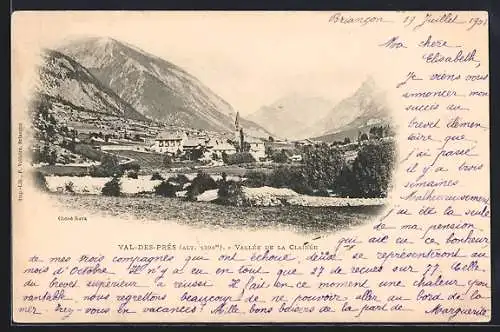 Briançon 19 Juillet 1901
Ma chère
Elisabeth,
Je viens vous
annoncer mon
succès au
brevet élémen
taire que
j'ai passé
il y a trois
semaines
Malheureusement
j'ai été la seule
de ma pension
qui ait eu ce bonheur
Imp.-Lib. F. Vollaire, Briançon
Cliché Mark
VAL-DES-PRÉS (ALT. 1300m). - VALLÉE DE LA CLAIRÉE
de mes trois compagnes qui ont échoué, deux se représenteront au
mois d'Octobre Il n'y a eu en tout que 27 de reçues sur 77. Celle
du brevet supérieur a réussi. Il fait en ce moment une chaleur épou
vantable nous regrettons beaucoup de ne pouvoir aller au bord de la
mer. Irez-vous en vacances? Mille bons baisers de la part de Marguerite